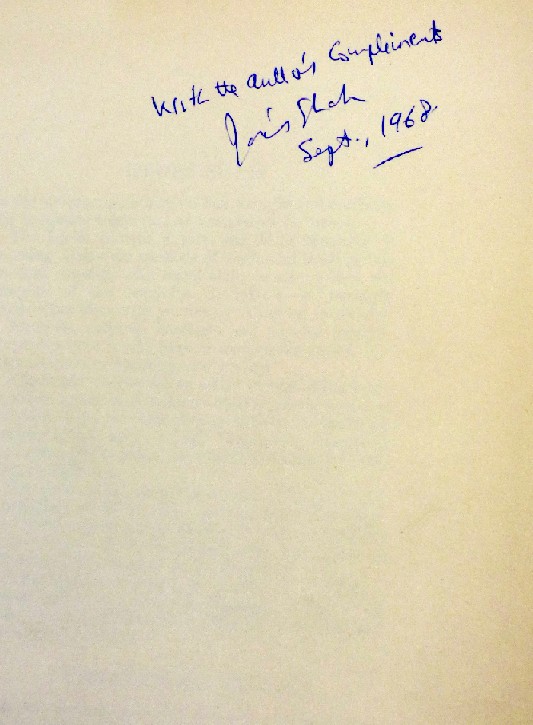 With the author's Compliments
Idries Shah
Sept., 1968.